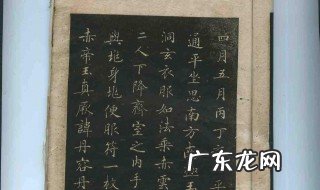 四月五月丙丁
通平坐思南方
洞玄衣服如法乘赤雲
二人下降齋室之内手
與兆身兆便服符一枚
赤帝玉真厥諱丹容丹
广东龙网